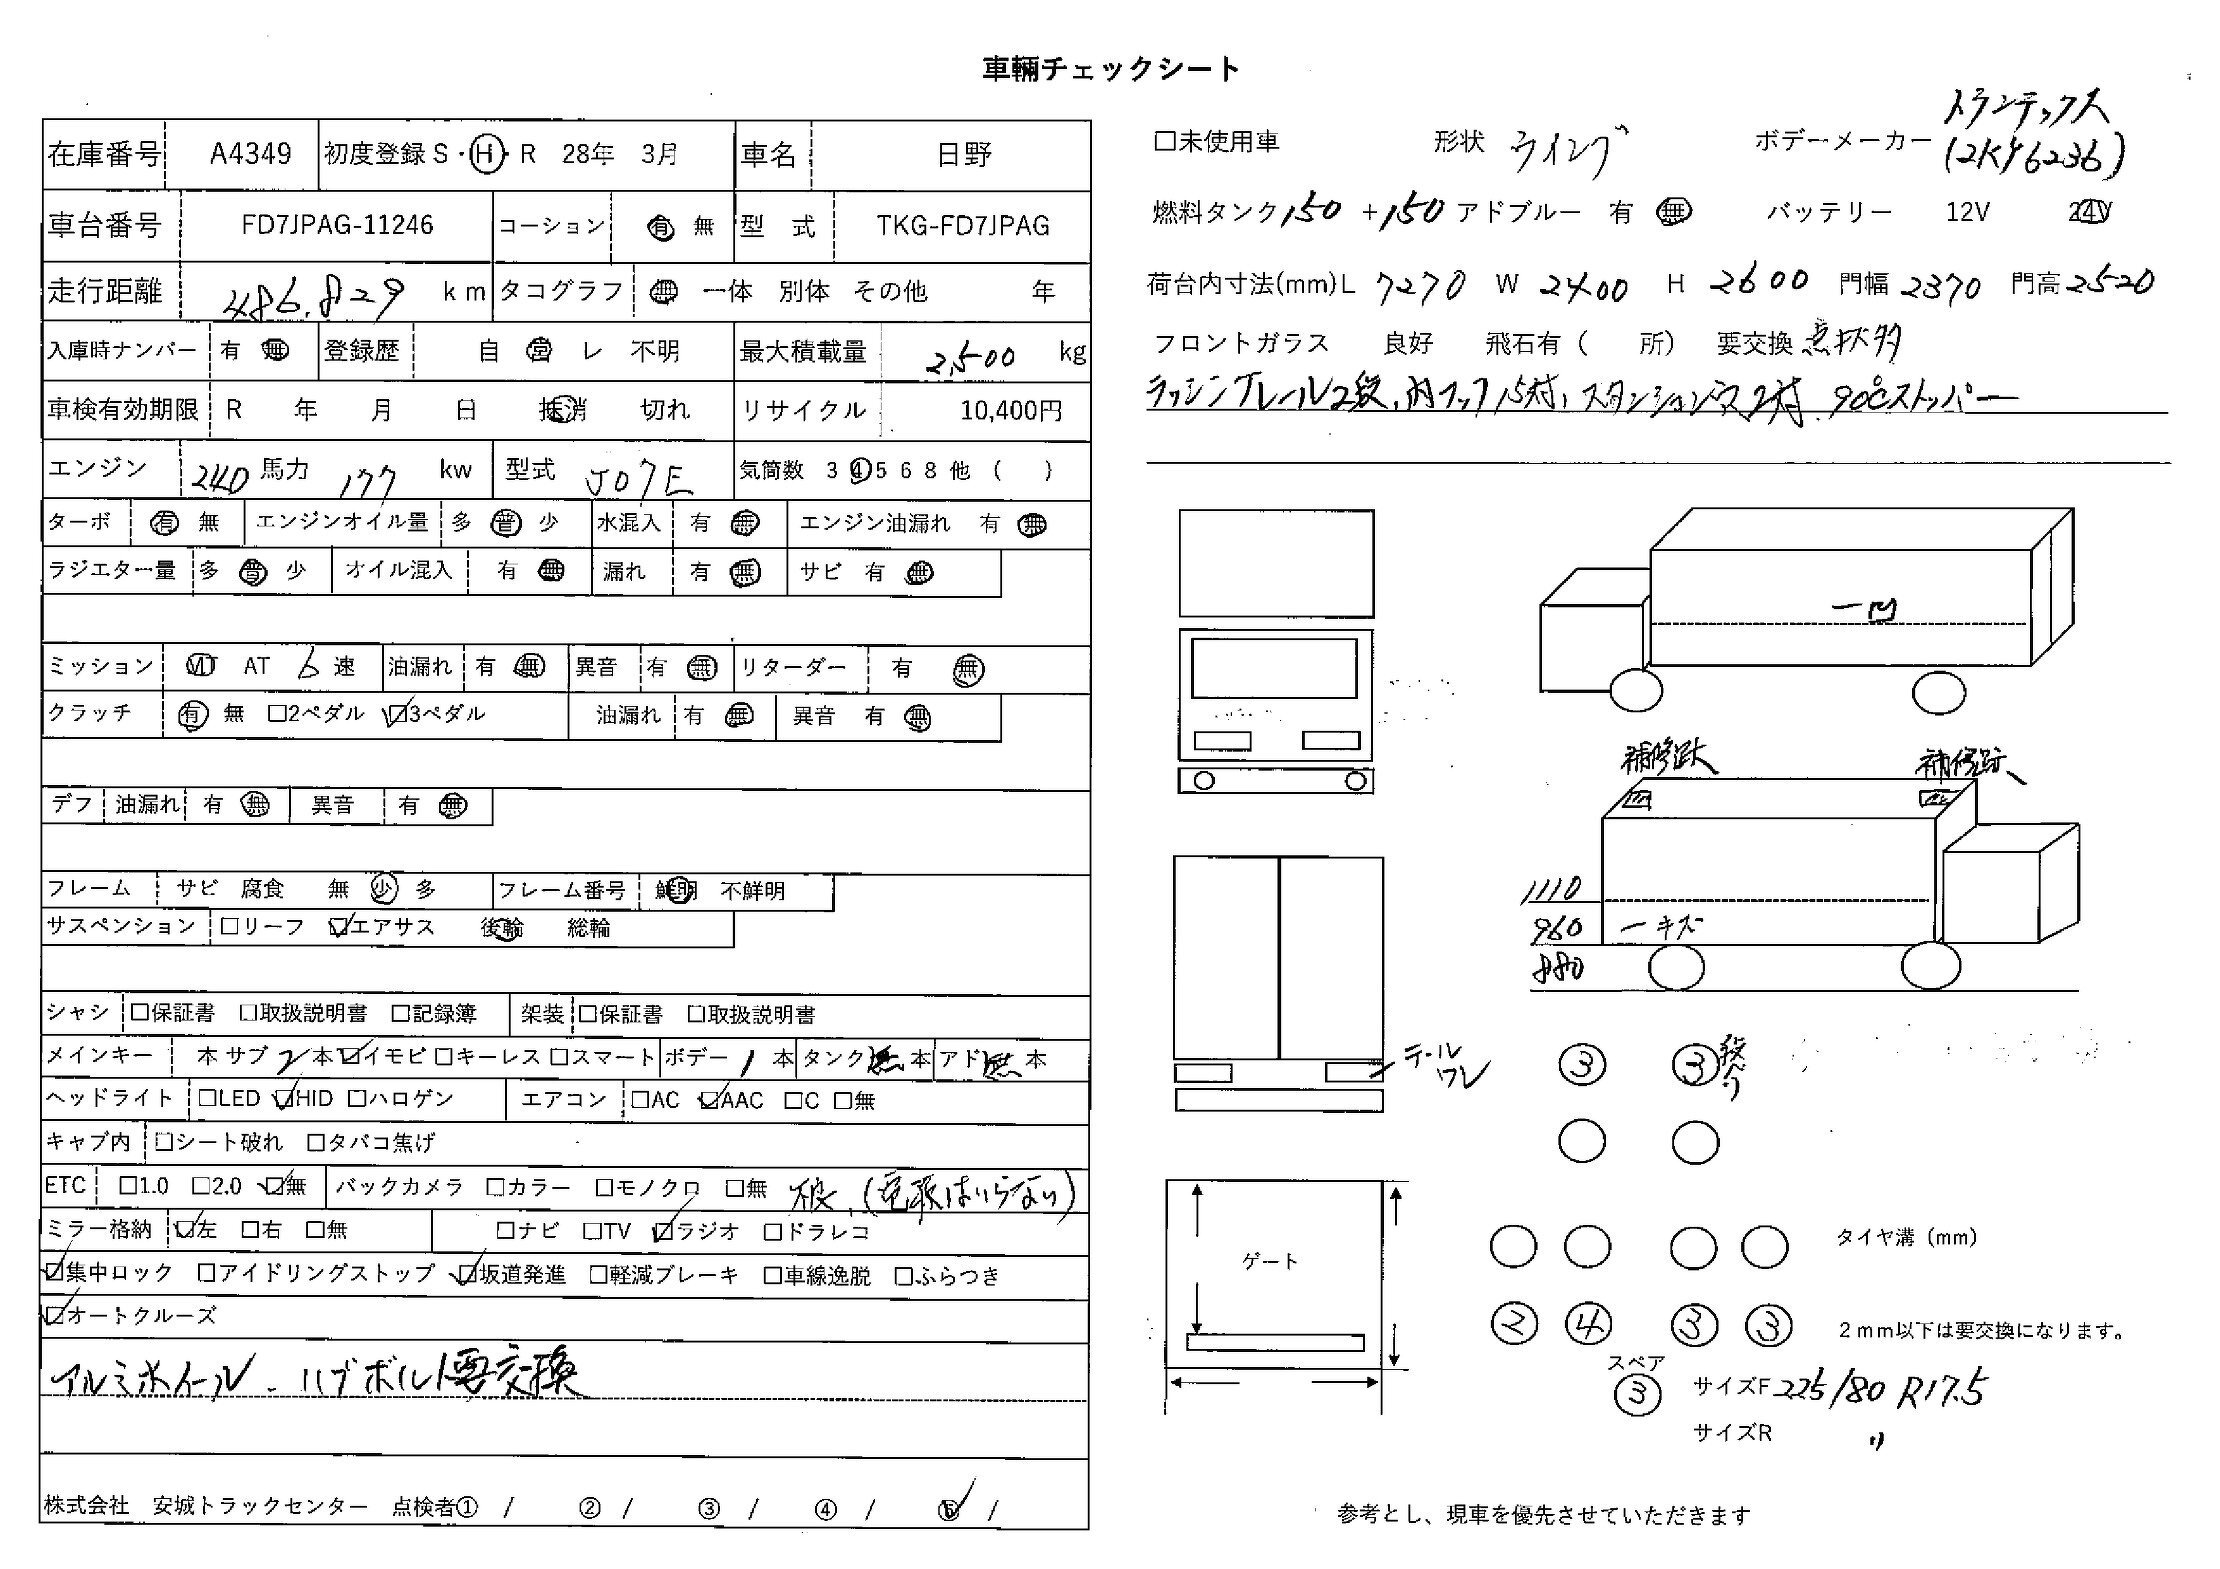 車輛チェックシート
在庫番号 A4349 初度登録 S・H・R 28年 3月 車名 日野
車台番号 FD7JPAG-11246 コーション 有 無 型 式 TKG-FD7JPAG
走行距離 486,829 km タコグラフ 無 一体 別体 その他 年
入庫時ナンバー 有 無 登録歴 自 営 レ 不明 最大積載量 2,500 kg
車検有効期限 R 年 月 日 抹消 切れ リサイクル 10,400円
エンジン 240 馬力 177 kw 型式 J07E 気筒数 3 4 5 6 8 他 ( )
ターボ 有 無 エンジンオイル量 多 普 少 水混入 有 無 エンジン油漏れ 有 無
ラジエター量 多 普 少 オイル混入 有 無 漏れ 有 無 サビ 有 無
ミッション MT AT 6 速 油漏れ 有 無 異音 有 無 リターダー 有 無
クラッチ 有 無 □2ペダル ☑3ペダル 油漏れ 有 無 異音 有 無
デフ 油漏れ 有 無 異音 有 無
フレーム サビ 腐食 無 少 多 フレーム番号 鮮明 不鮮明
サスペンション □リーフ ☑エアサス 後輪 総輪
シャシ □保証書 □取扱説明書 □記録簿 架装 □保証書 □取扱説明書
メインキー 本 サブ 2 本 ☑イモビ □キーレス □スマート ボデー 1 本 タンク 無 本 アド 無 本
ヘッドライト □LED ☑HID □ハロゲン エアコン □AC ☑AAC □C □無
キャブ内 □シート破れ □タバコ焦げ
ETC □1.0 □2.0 ☑無 バックカメラ □カラー □モノクロ □無 (電源はいらない)
ミラー格納 ☑左 □右 □無 □ナビ □TV ☑ラジオ □ドラレコ
☑集中ロック □アイドリングストップ ☑坂道発進 □軽減ブレーキ □車線逸脱 □ふらつき
☑オートクルーズ
アルミホイール、ハブボルト要交換
株式会社 安城トラックセンター 点検者① / ② / ③ / ④ / ⑤ /
□未使用車 形状 ウイング ボデーメーカー トランテックス
(2KY6236)
燃料タンク 150 + 150 アドブルー 有 無 バッテリー 12V 24V
荷台内寸法(mm) L 7270 W 2400 H 2600 門幅 2370 門高 2520
フロントガラス 良好 飛石有 ( 所) 要交換 点状多
ラッシングレール2段、内フック15対、スタンション穴2対 90℃ストッパー
一凹
補修跡 補修跡
1110
960 一キズ
880
テール
ワレ
③ ③ 段べり
ゲート
タイヤ溝 (mm)
② ④ ③ ③ 2mm以下は要交換になります。
スペア
③ サイズF 225/80 R17.5
サイズR 〃
参考とし、現車を優先させていただきます